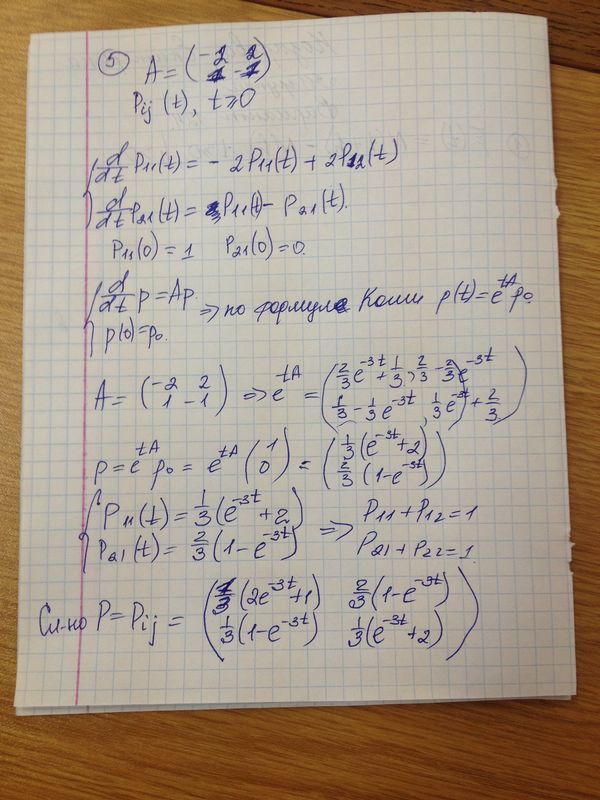 ⑤ A = (-2 2
1 -1)
Pij (t), t ≥ 0
{ d/dt P11(t) = - 2P11(t) + 2P12(t)
d/dt P21(t) = P11(t) - P21(t).
P11(0) = 1 P21(0) = 0.
{ d/dt p = Ap ⇒ по формуле Коши p(t) = e^{tA} p0
p(0) = p0.
A = (-2 2
1 -1) ⇒ e^{tA} = (2/3 e^{-3t} + 1/3, 2/3 - 2/3 e^{-3t}
1/3 - 1/3 e^{-3t}, 1/3 e^{-3t} + 2/3)
p = e^{tA} p0 = e^{tA} (1
0) = (1/3 (e^{-3t} + 2)
2/3 (1 - e^{-3t}))
{ P11(t) = 1/3 (e^{-3t} + 2) ⇒ P11 + P12 = 1
P21(t) = 2/3 (1 - e^{-3t}) P21 + P22 = 1
Сл-но P = Pij = (1/3 (2e^{-3t} + 1) 2/3 (1 - e^{-3t})
1/3 (1 - e^{-3t}) 1/3 (e^{-3t} + 2))